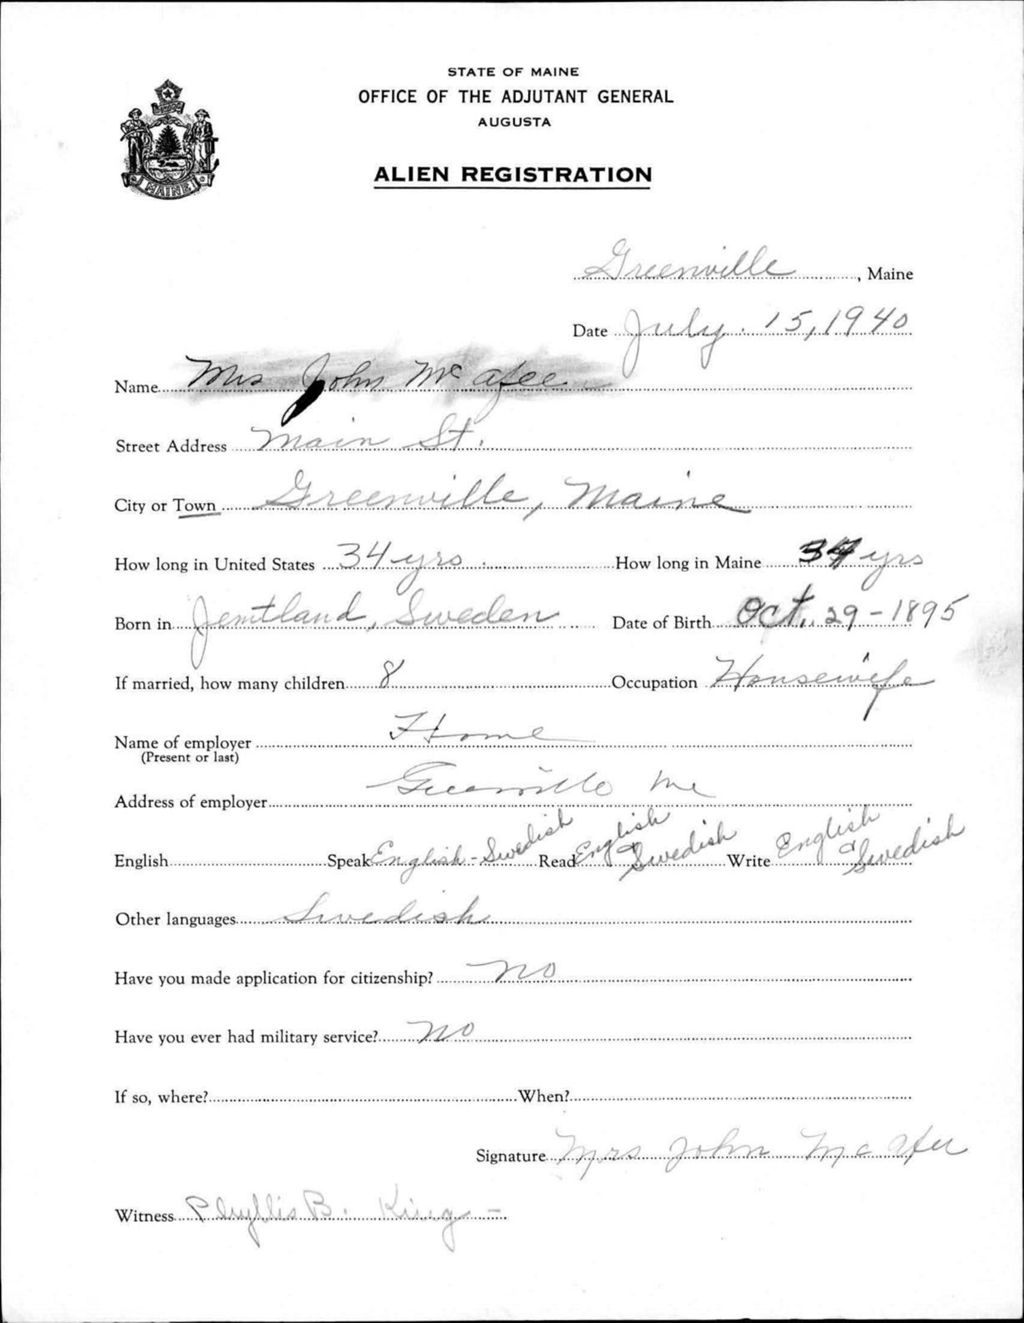 STATE OF MAINE
OFFICE OF THE ADJUTANT GENERAL
AUGUSTA
ALIEN REGISTRATION
MAINE
Greenville, Maine
Date July. 15, 1940
Name Mrs John McAfee
Street Address Main St.
City or Town Greenville, Maine
How long in United States 34 yrs How long in Maine 34 yrs
Born in Jemtland, Sweden Date of Birth Oct. 29-1895
If married, how many children 8 Occupation Housewife
Name of employer Home
(Present or last)
Address of employer Greenville Me
English Speak English-Swedish Read English Swedish Write English Swedish
Other languages Swedish
Have you made application for citizenship? no
Have you ever had military service? no
If so, where? When?
Signature Mrs John McAfee
Witness Phyllis B. King-